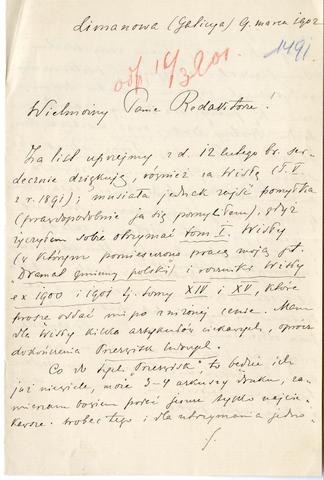 Limanowa (Galicya) 9. marca 1902
1491.
odp 14/3 901.
Wielmożny Panie Redaktorze!
Za list uprzejmy z d. 12 lutego br. ser-
decznie dziękuję, również za Wisłę (T. V.
z r. 1891); musiała jednak zajść pomyłka
(prawdopodobnie ja się pomyliłem), gdyż
życzyłem sobie otrzymać tom I. Wisły
(w którym pomieszczono pracę moją pt.
"Dramat gminny polski) i roczniki Wisły
ex 1900 i 1901 tj. tomy XIV i XV, które
proszę oddać mi po zniżonej cenie. Mam
dla Wisły kilka artykułów ciekawych, oprócz
dokończenia Przezwisk ludowych.
Co do tych "Przezwisk", to będzie ich
już niewiele, może 3-4 arkuszy druku, za-
mierzam bowiem podać jeszcze tylko najcie-
kawsze. Wobec tego i dla utrzymania jedno-